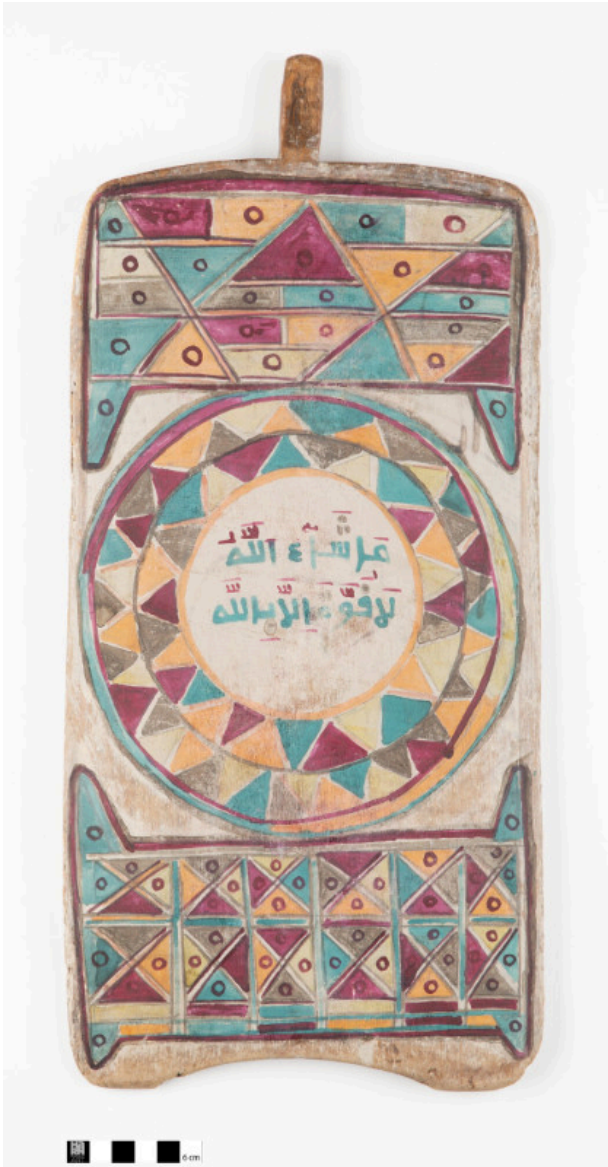 ما شاء الله
لا قوة الا بالله
6 cm